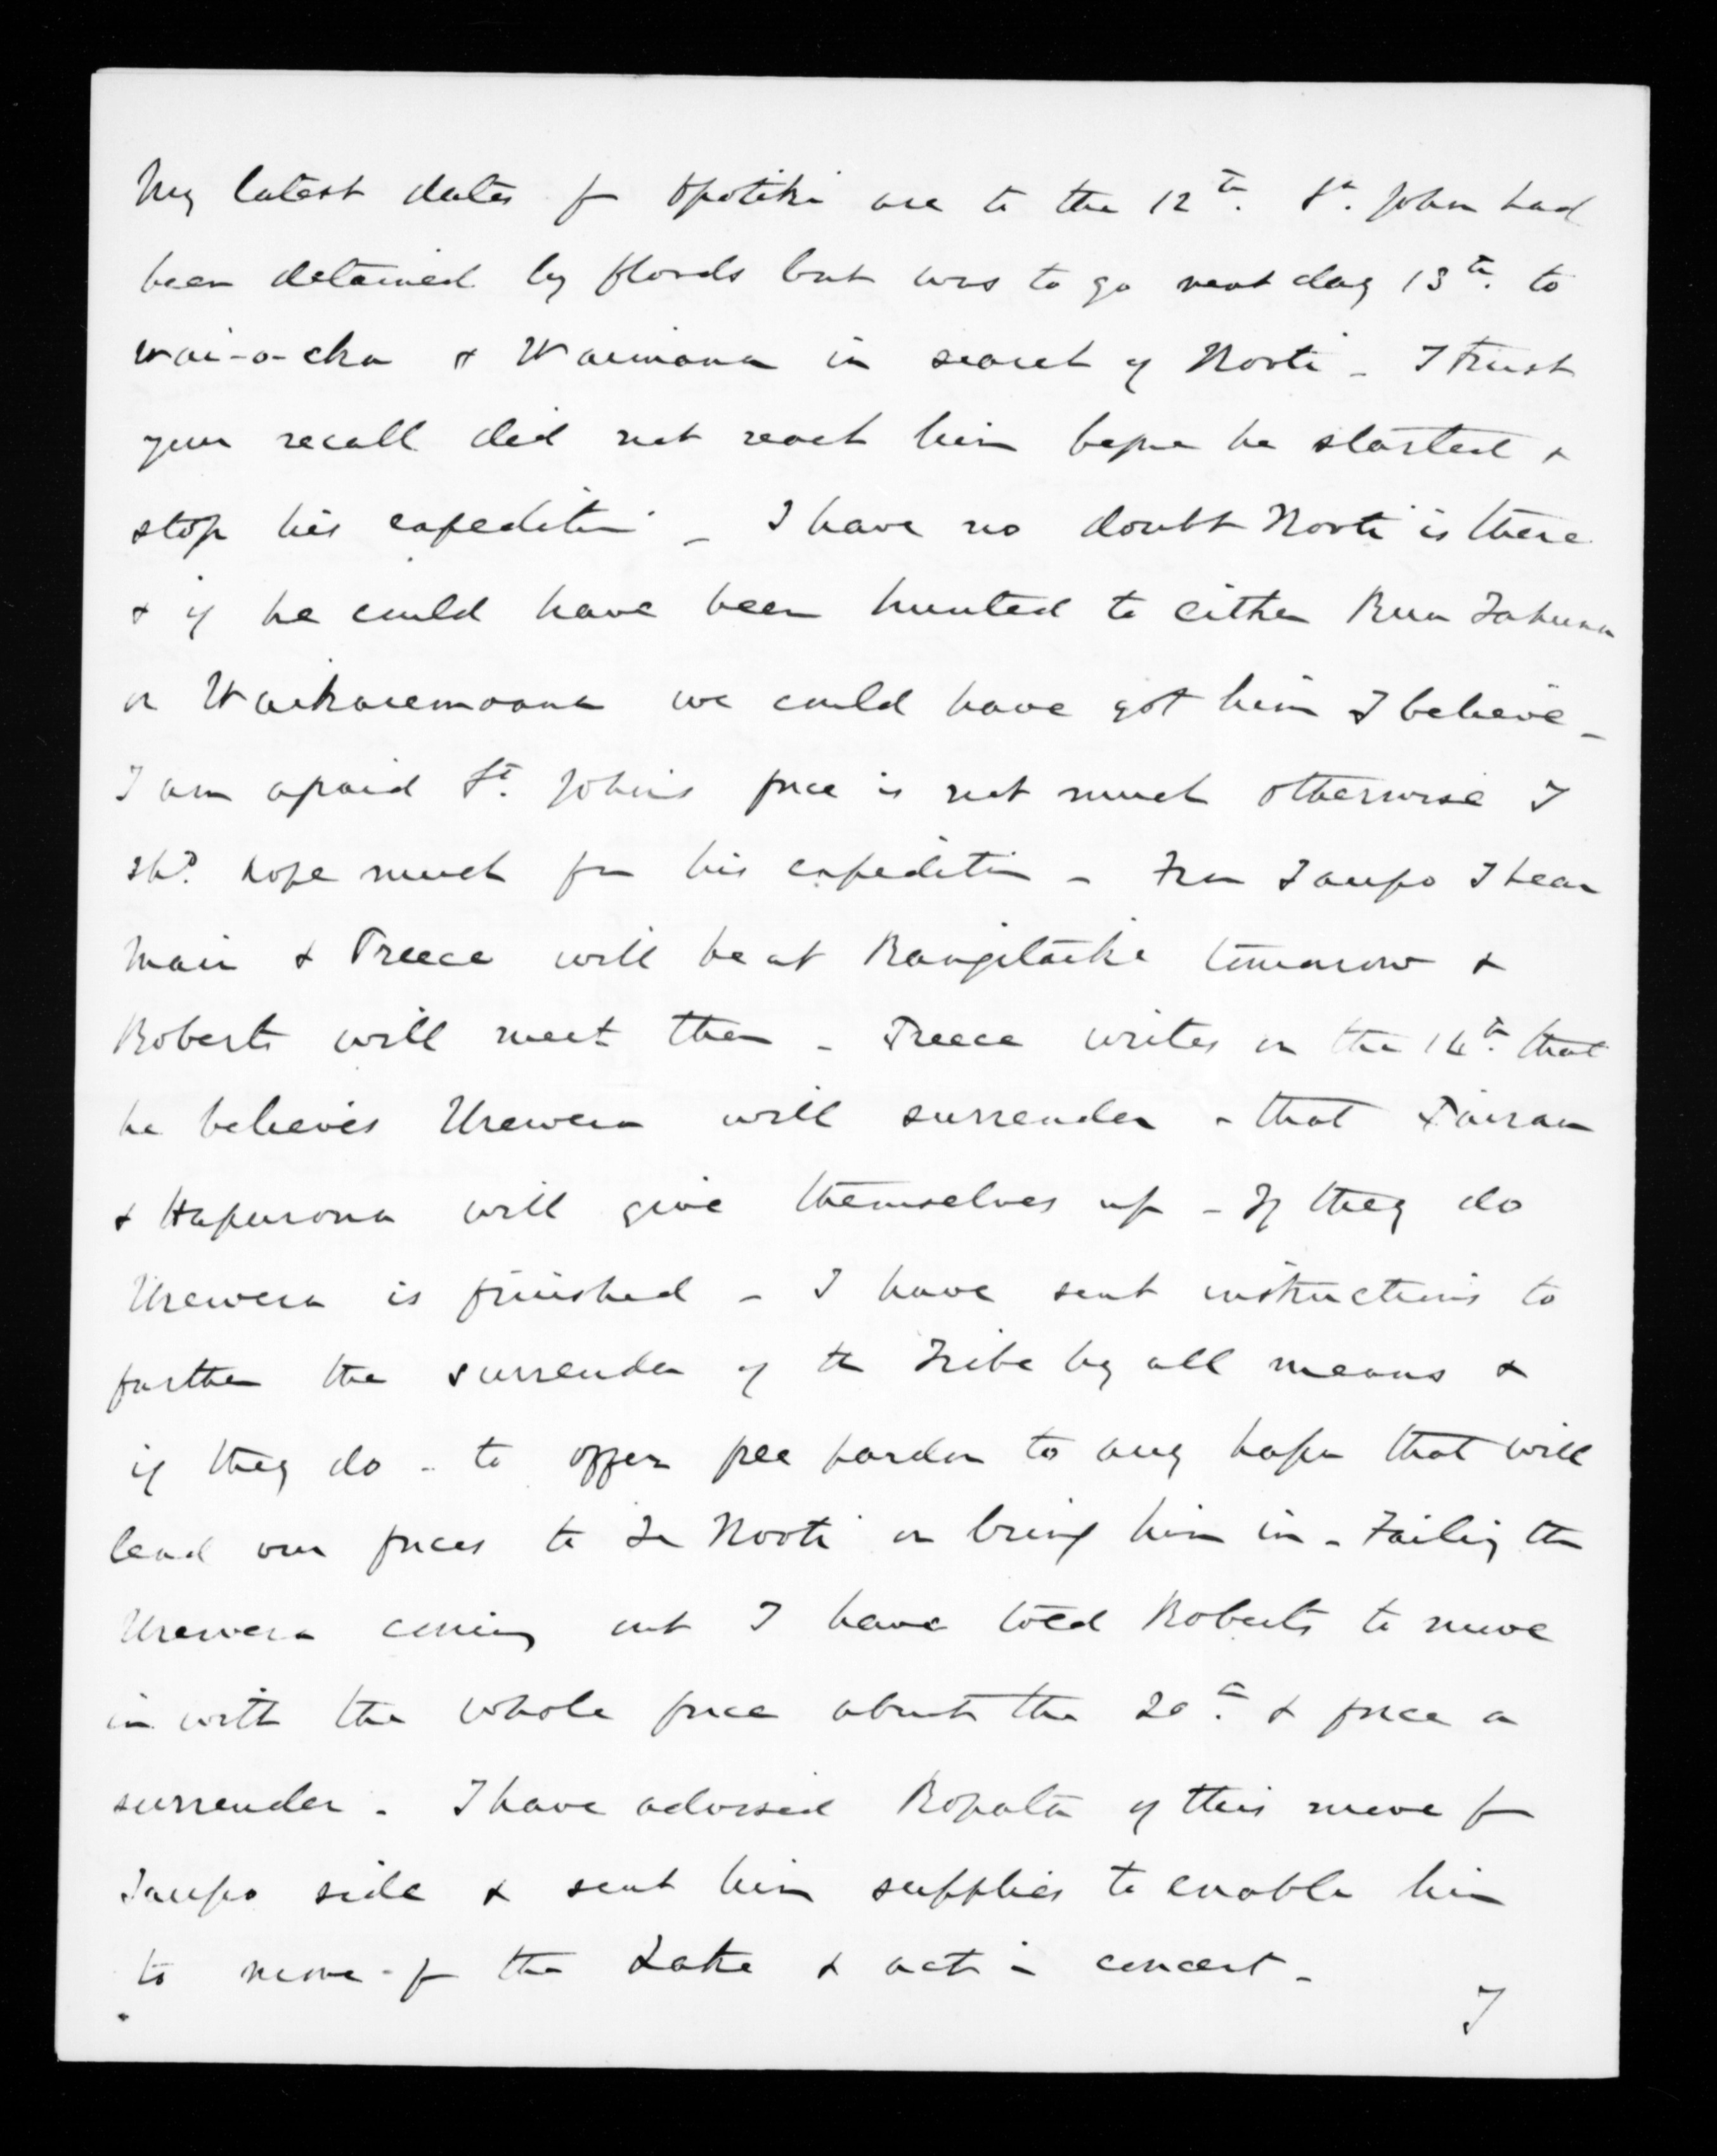 My latest dates fr Opotiki are to the 12th. St. John had
been detained by floods but was to go next day 13th. to
Wai-o-eka & Waimana in search of Kooti - I trust
your recall did not reach him before he started &
stop his expedition - I have no doubt Kooti is there
& if he could have been hunted to either Rua Tahuna
or Waikaremoana we could have got him I believe -
I am afraid St. John's force is not much otherwise I
shd. hope much fm his expedition - From Taupo I hear
Mair & Preece will be at Rangitaiki tomorrow &
Roberts will meet them - Preece writes on the 14th. that
he believes Urewera will surrender - that Pairau
& Hapurona will give themselves up - If they do
Urewera is finished - I have sent instructions to
further the surrender of the Tribe by all means &
if they do - to offer free pardon to any hapu that will
lead our forces to Te Kooti or bring him in - Failing the
Urewera coming out I have told Roberts to move
in with the whole force about the 20th. & force a
surrender - I have advised Ropata of this move fr
Taupo side & sent him supplies to enable him
to move fr the Lake & act in concert -
I